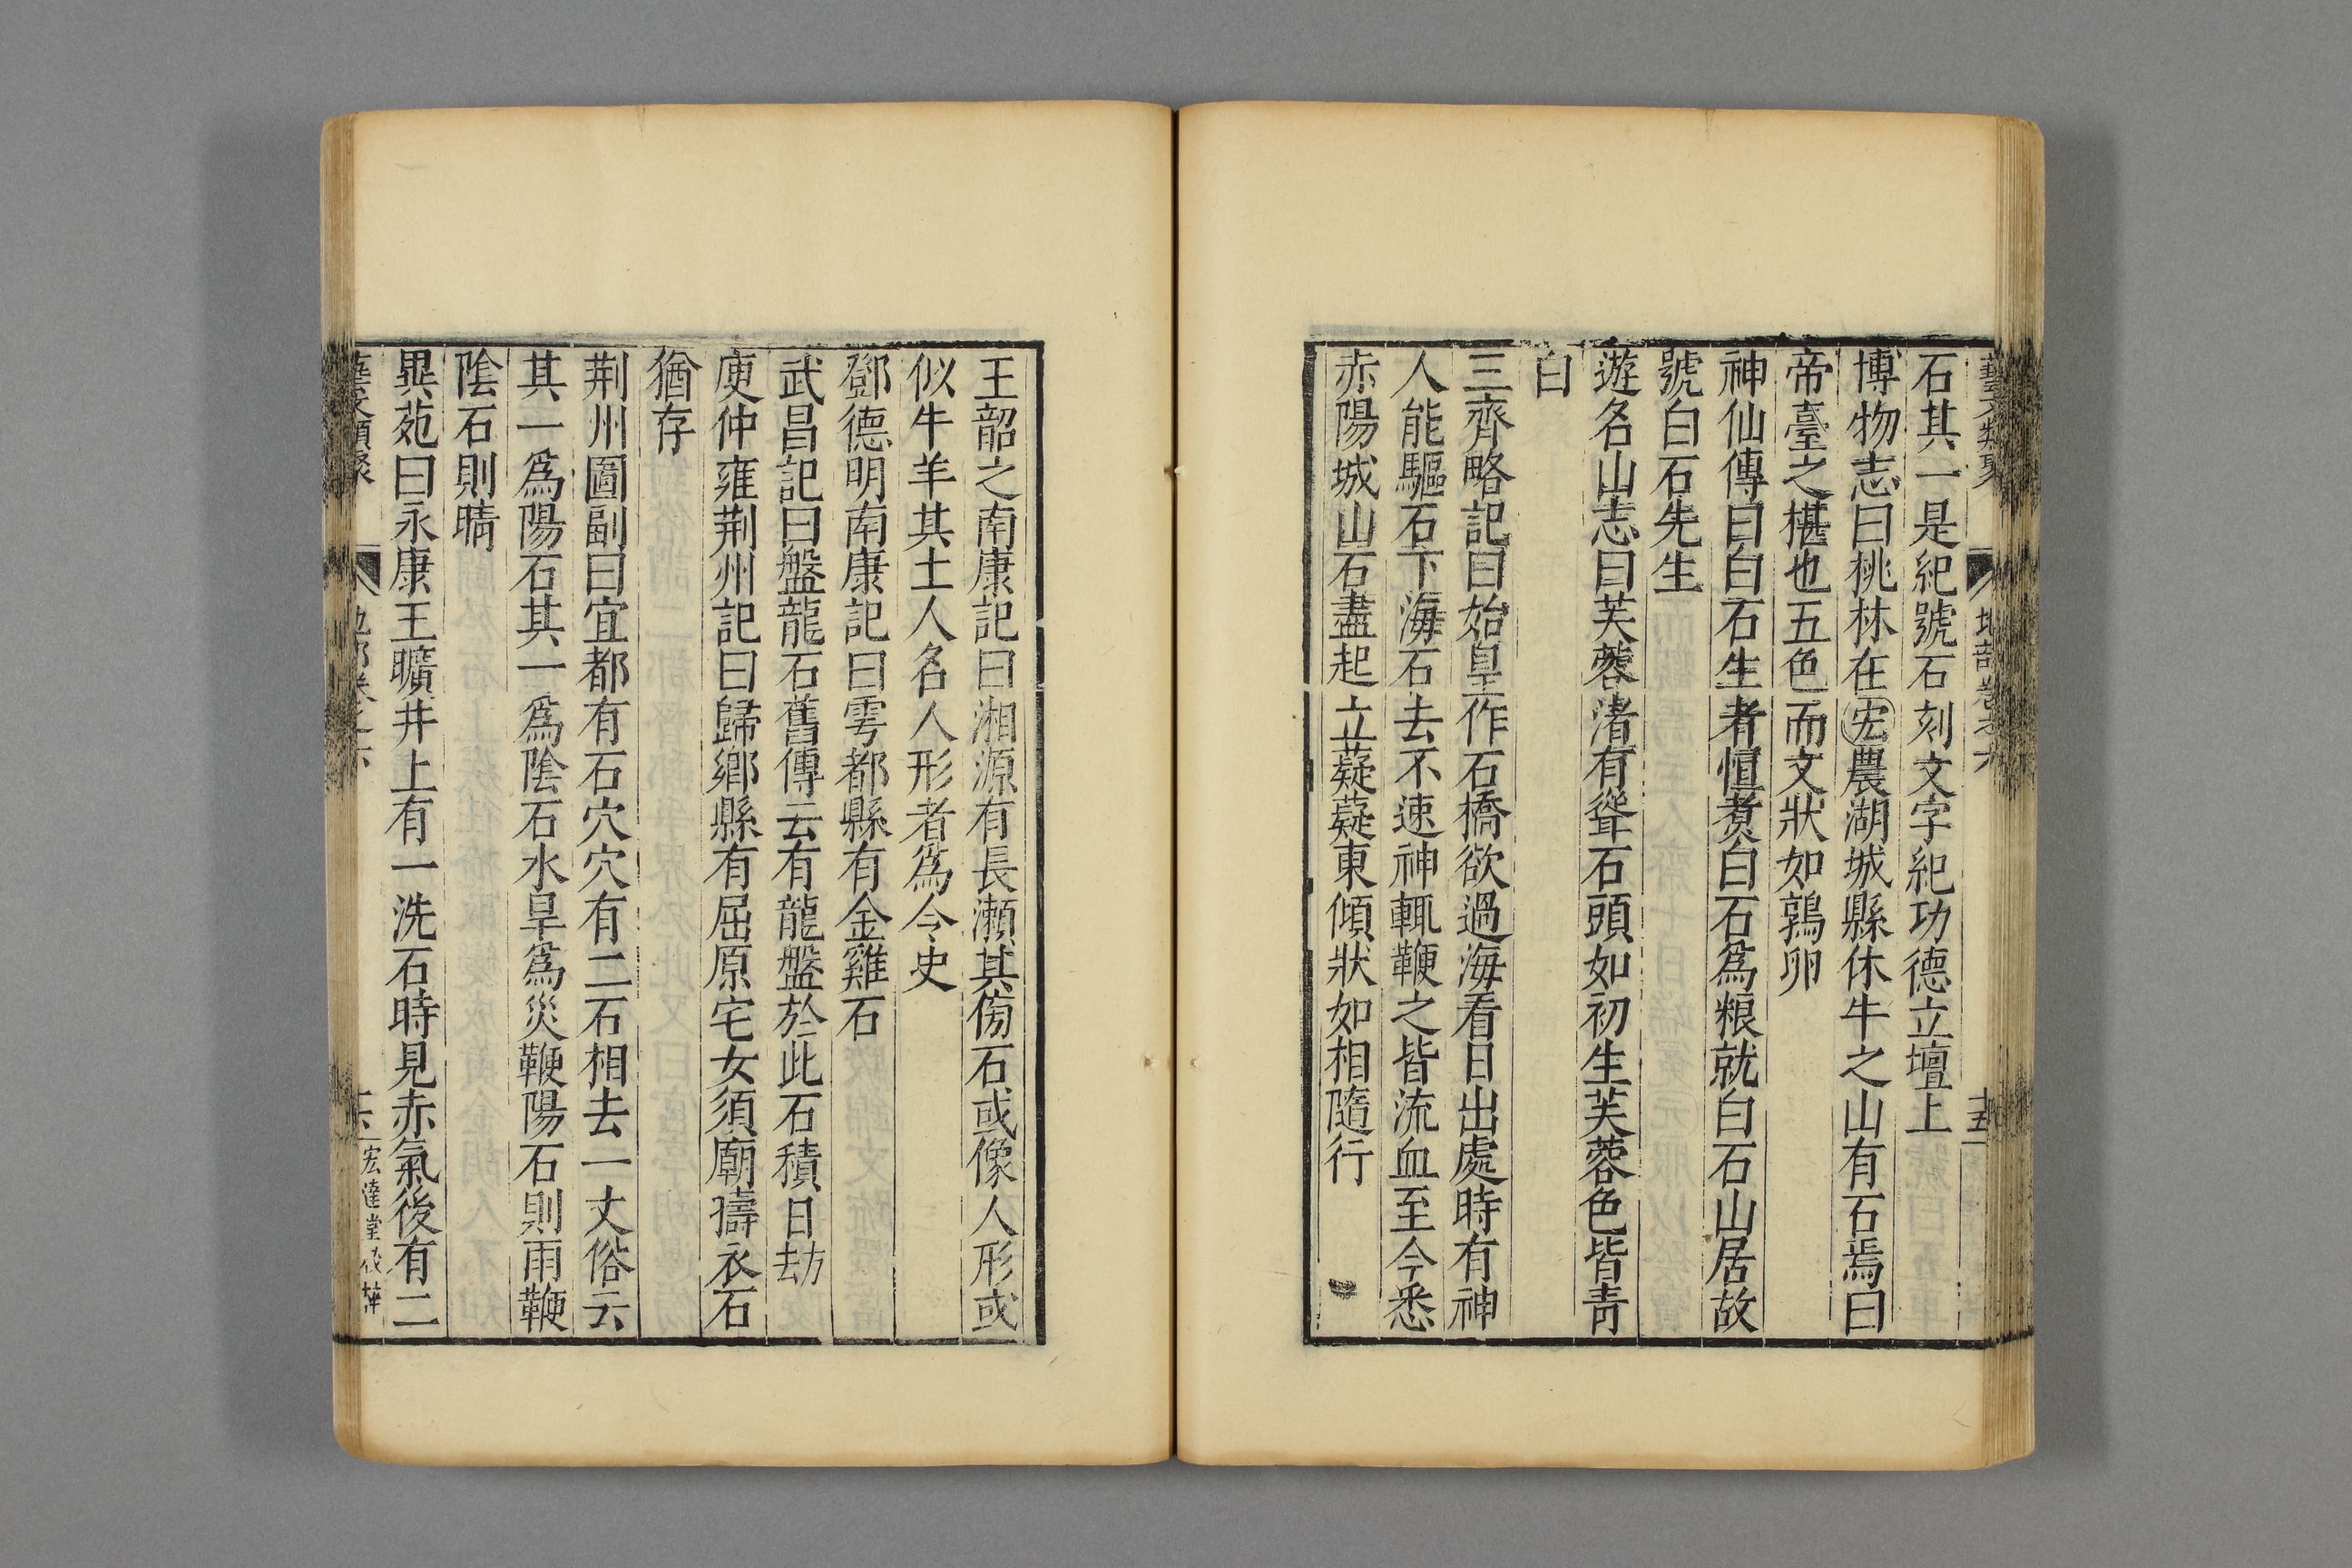 石其一是紀號石刻文字紀功德立壇上
博物志曰桃林在宏農湖城縣休牛之山有石焉曰
帝臺之椹也五色而文狀如鶉卵
神仙傳曰白石生者恒煑白石爲粮就白石山居故
號白石先生
遊名山志曰芙蓉渚有聳石頭如初生芙蓉色皆青
白
三齊略記曰始皇作石橋欲過海看日出處時有神
人能驅石下海石去不速神輒鞭之皆流血至今悉
赤陽城山石盡起立薿薿東傾狀如相隨行
王韶之南康記曰湘源有長瀨其傍石或像人形或
似牛羊其土人名人形者爲令史
鄧德明南康記曰雩都縣有金雞石
武昌記曰盤龍石舊傳云有龍盤於此石積日方去
庾仲雍荆州記曰歸鄉縣有屈原宅女須廟擣衣石
猶存
荆州圖副曰宜都有石穴穴有二石相去一丈俗云
其一爲陽石其一爲陰石水旱爲災鞭陽石則雨鞭
陰石則晴
異苑曰永康王曠井上有一洗石時見赤氣後有二